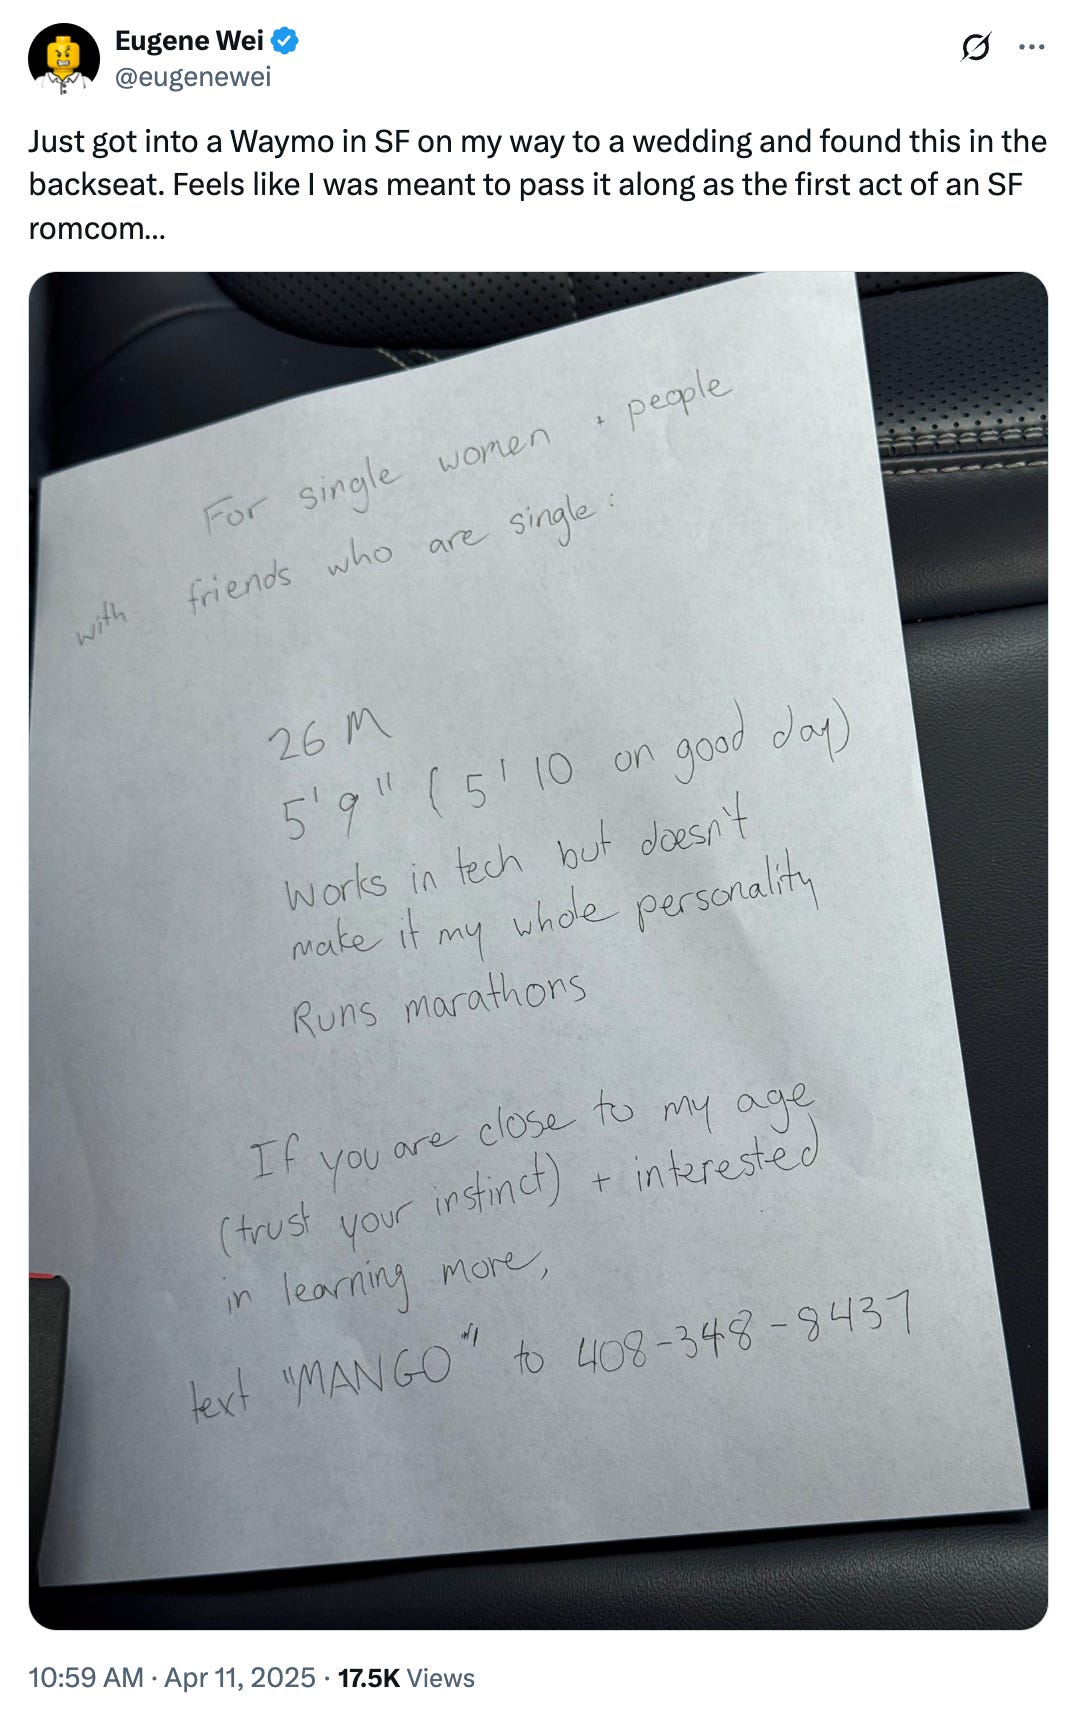 Eugene Wei
@eugenewei
Just got into a Waymo in SF on my way to a wedding and found this in the
backseat. Feels like I was meant to pass it along as the first act of an SF
romcom...
For single women + people
with friends who are single:
26 M
5'9" (5'10 on good day)
Works in tech but doesn't
make it my whole personality
Runs marathons
If you are close to my age
(trust your instinct) + interested
in learning more,
text "MANGO" to 408-348-8437
10:59 AM · Apr 11, 2025 · 17.5K Views